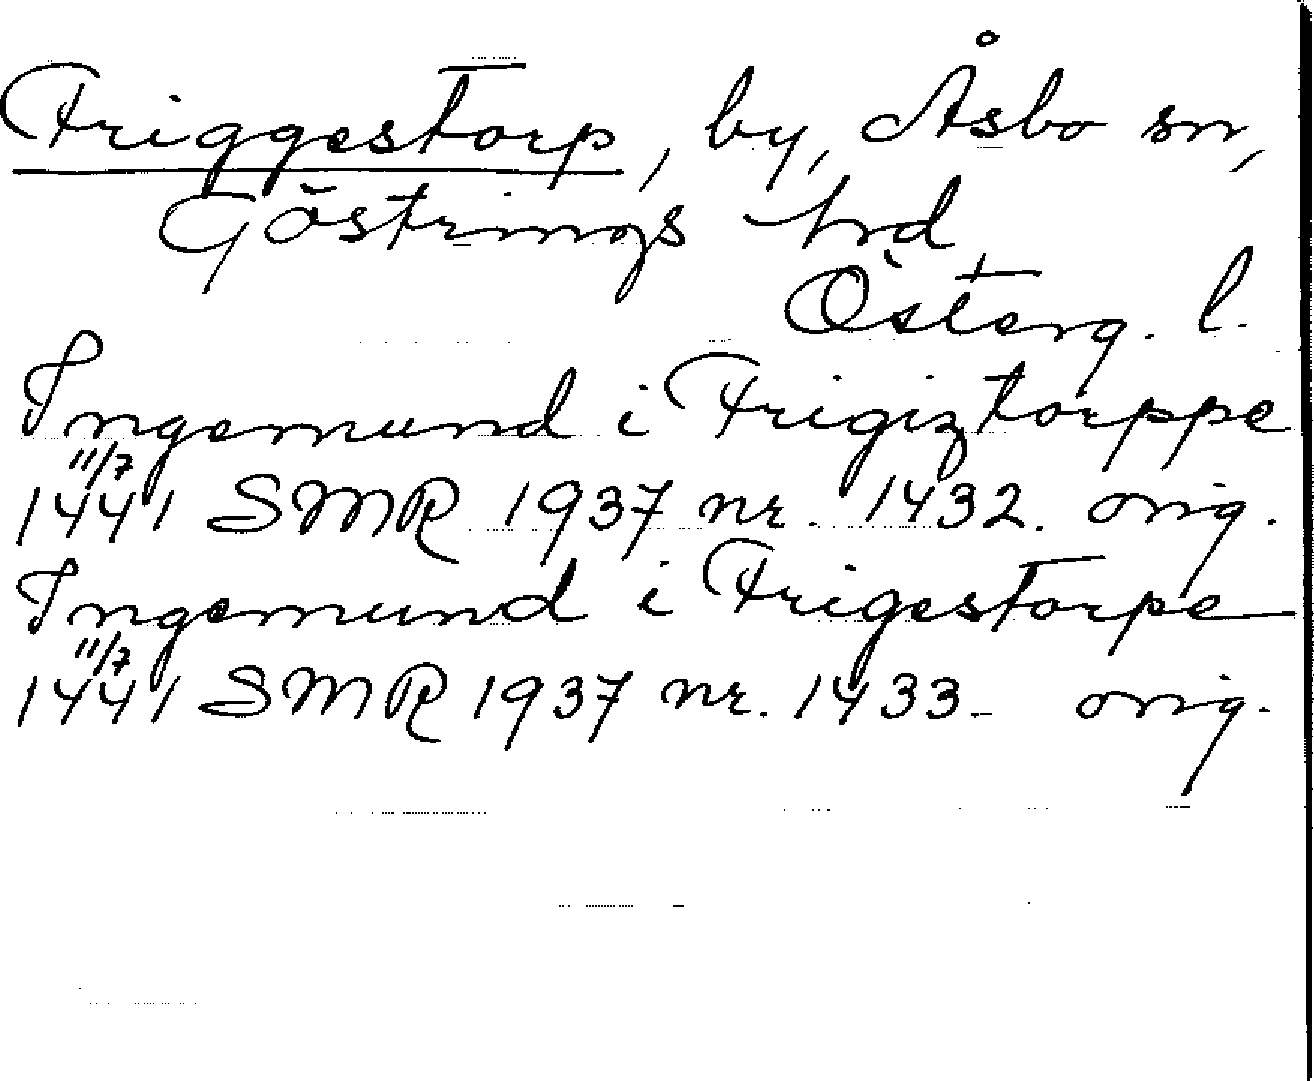 Friggestorp, by, Åsbo sn,
Göstrings hd
Österg. l.
Ingemund i Frigiztorppe
11/7
1441 SMR 1937 nr. 1432. orig.
Ingemund i Frigestorpe
11/7
1441 SMR 1937 nr. 1433. orig.